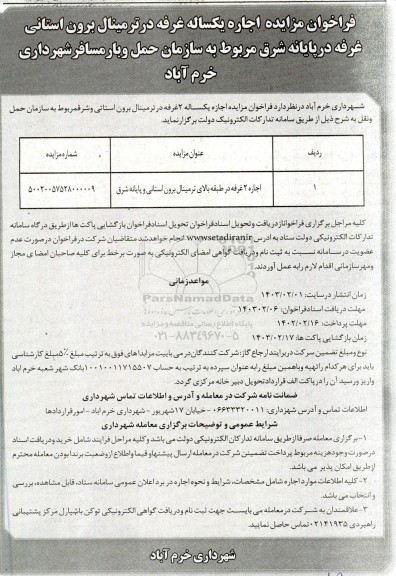 فراخوان مزایده اجاره یکساله غرفه درترمینال برون استانی
غرفه درپایانه شرق مربوط به سازمان حمل وبارمسافرشهرداری
خرم آباد
شهرداری خرم آباد درنظردارد فراخوان مزایده اجاره یکساله ۲غرفه در ترمینال برون استانی وشرقمربوط به سازمان حمل
ونقل به شرح ذیل از طریق سامانه تدارکات الکترونیک دولت برگزارنماید.
ردیف عنوان مزایده شماره مزایده
۱ اجاره ۲غرفه در طبقه بالای ترمینال برون استانی و پایانه شرق ۵۰۰۲۰۰۵۷۵۲۸۰۰۰۰۰۹
کلیه مراحل برگزاری فراخواناز دریافت وتحویل اسنادفراخوان تحویل اسنادفراخوان بازگشایی پاکت هااز طریق درگاه سامانه
تدارکات الکترونیکی دولت ستادبه ادرس www.setadiranir انجام خواهدشد متقاضیان شرکت درفراخوان درصورت عدم
عضویت درسامانه نسبت به ثبت نام ودریافت گواهی امضای الکترونیکی به صورت برخط برای کلیه صاحبان امضای مجاز
ومهرسازمانی اقدام لازم رابه عمل آوردند.
مواعدزمانی
زمان انتشار درسایت: ۱۴۰۳/۰۲/۰۱
مهلت دریافت اسنادفراخوان: ۱۴۰۳۰۲/۰۶
مهلت پرداخت: ۱۴۰۲/۰۲/۱۶
زمان بازگشایی پاکت ها: ۱۴۰۳/۰۲/۱۷
ParsNamadData
پایگاه اطلاع رسانی مناقصه و مزایده
۰۲۱-۸۸۳۴۹۶۷۰-۵
نوع ومبلغ تضمین شرکت دربرایندارجاع کار: شرکت کنندگان در می بایست مزایدهای فوق به ترتیب مبلغ ۵%مبلغ کارشناسی
باید برای هرکدام راتهیه وباهمین مبلغ رابه عنوان سپرده به ترتیب به حساب ۱۰۰۱۰۰۱۱۷۱۵۵۰۷بانک شهر شعبه خرم آباد
واریز ورسید آن را درپاکت الف قراردادتحویل دبیر خانه مرکزی گردد.
ضمانت نامه شرکت در معامله و آدرس و اطلاعات تماس شهرداری
اطلاعات تماس و آدرس شهرداری: ۰۶۶۳۳۳۲۰۰۱۱ -خیابان ۱۷شهریور - شهرداری خرم اباد - امورقراردادها
شرایط عمومی و توضیحات برگزاری معامله شهرداری
۱-برگزاری معامله صرفااز طریق سامانه تدارکان الکترونیکی دولت می باشد وکلیه مراحل فرایند شامل خرید ودریافت اسناد
درصورت وجود هزینه مربوط پرداخت تضمینن شرکت درمعامله ارسال پیشنهاد قیما واطلاع ازوضعیت برندابودن معامله محترم
از طریق امکان پذیر می باشد.
۲-کلیه اطلاعات موارد اجاره شامل مشخصات، شرایط و نحوه اجاره در برد اعلان عمومی سامانه ستاد، قابل مشاهده، بررسی
و انتخاب می باشد.
۳-علاقمندان به شرکت درمعامله می بایست جهت ثبت نام ودریافت گواهی الکترونیکی توکن باشارل مرکز پشتیبانی
راهبردی ۰۲۱۴۱۹۳۵ تماس حاصل نمایید.
شهرداری خرم آباد